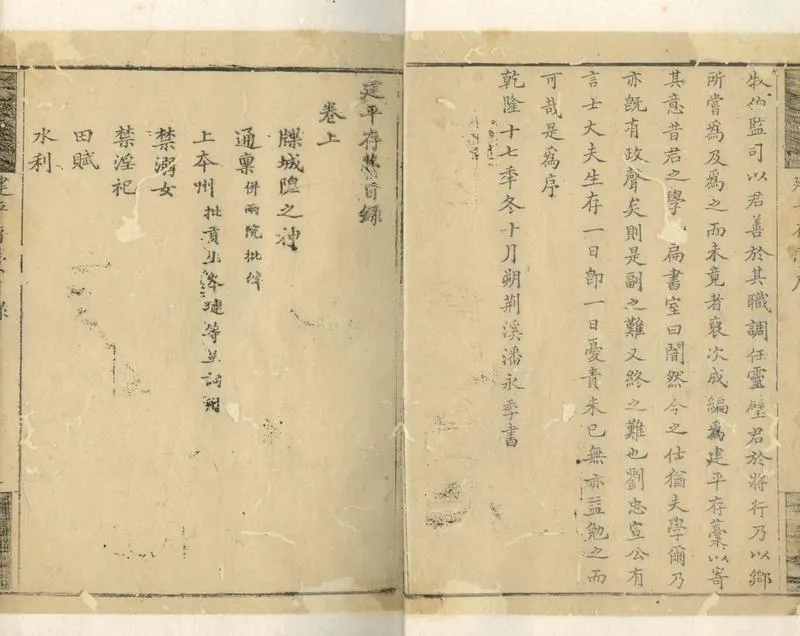 牧伯監司以君善於其職調任靈璧君於將行乃以鄉
所嘗為及為之而未竟者裒次成編為建平存藁以寄
其意昔君之學扁書室曰闇然今之仕猶夫學爾乃
亦既有政聲矣則是副之難又終之難也劉忠宣公有
言士大夫生存一日即一日憂責未已無亦益勉之而
可哉是為序
乾隆十七季冬十月朔荆溪潘永季書
建平存藁目錄
卷上
牒城隍之神
通稟併兩院批繹
上本州批貢生岑璉等並詞
禁溺女
禁淫祀
田賦
水利